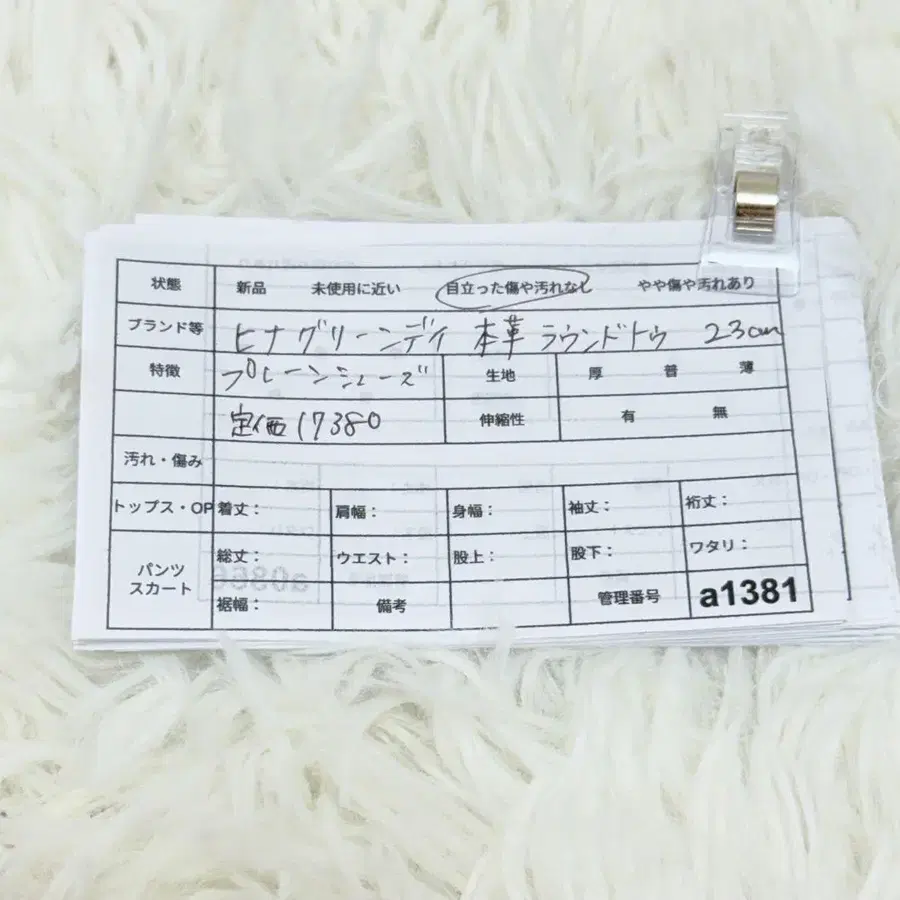 状態 新品 未使用に近い 目立った傷や汚れなし やや傷や汚れあり
ブランド等 ヒナグリーンデイ 本革 ラウンドトウ 23cm
特徴 プレーンシューズ 生地 厚 普 薄
定価17380 伸縮性 有 無
汚れ・傷み
トップス・OP 着丈： 肩幅： 身幅： 袖丈： 裄丈：
パンツ スカート 総丈： ウエスト： 股上： 股下： ワタリ：
裾幅： 備考 管理番号 a1381